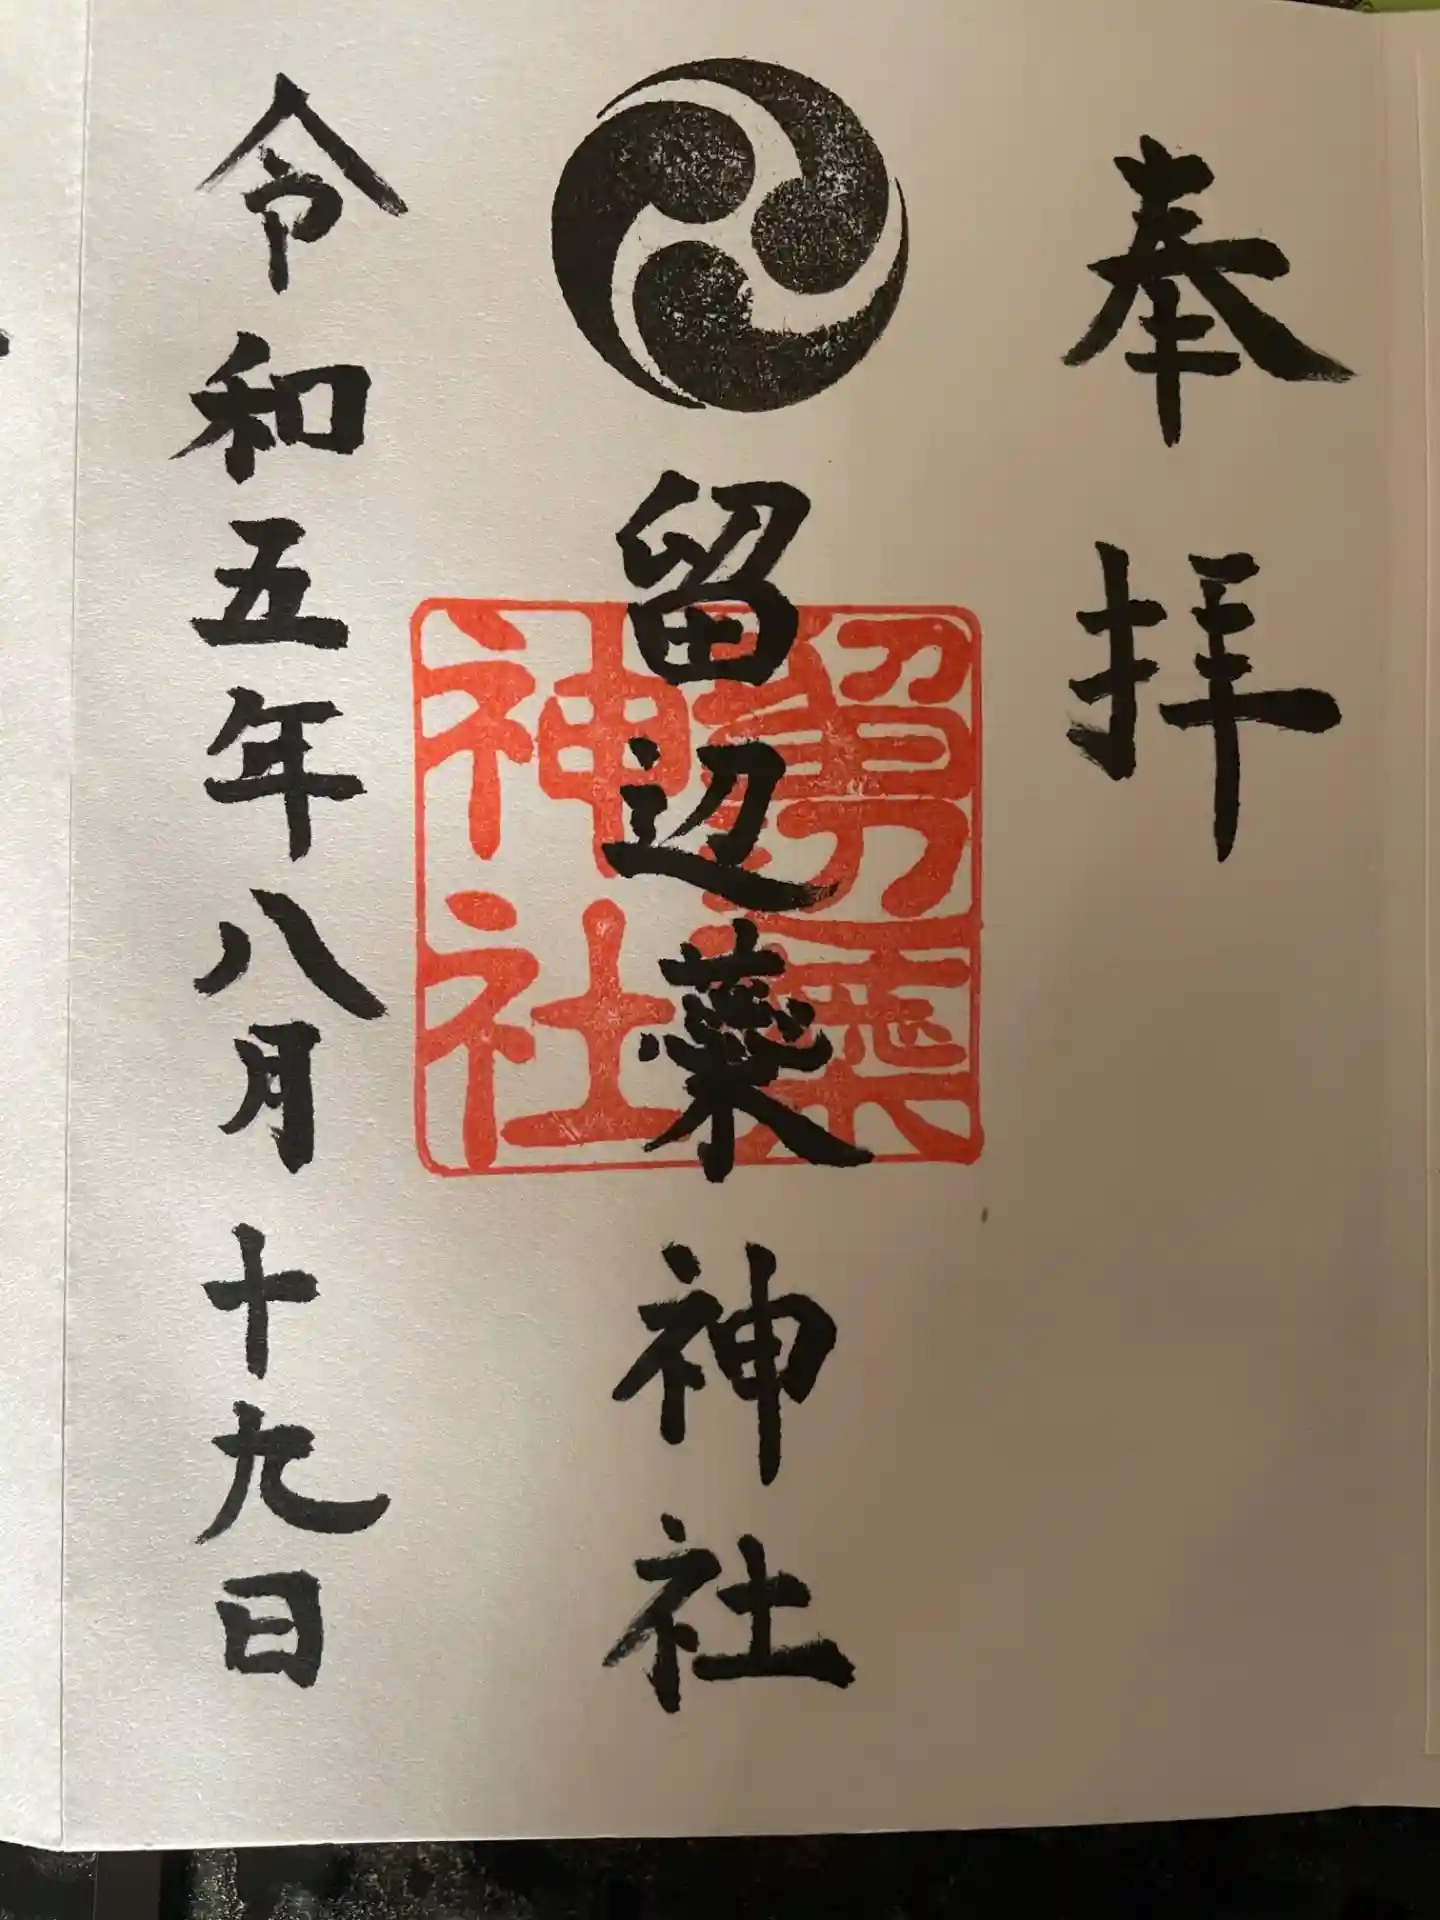 奉拝
留辺蘂神社
留辺蘂
神社
令和五年八月十九日